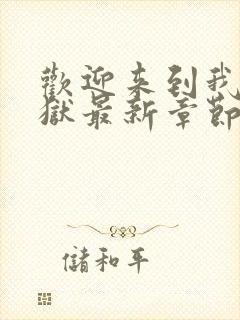 歡迎來到我
獄最新章節
儲和平